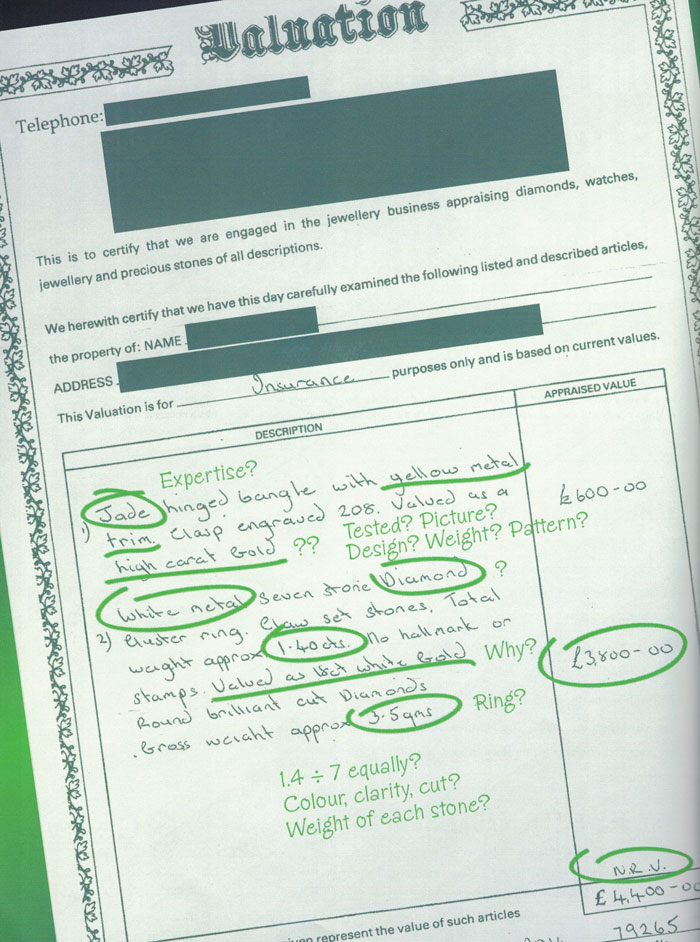 Valuation
Telephone:
This is to certify that we are engaged in the jewellery business appraising diamonds, watches,
jewellery and precious stones of all descriptions.
We herewith certify that we have this day carefully examined the following listed and described articles,
the property of: NAME
ADDRESS
This Valuation is for Insurance purposes only and is based on current values.
DESCRIPTION
APPRAISED VALUE
Expertise?
1) Jade hinged bangle with yellow metal
£600-00
trim. Clasp engraved 208. Valued as a
Tested? Picture?
high carat Gold ??
Design? Weight? Pattern?
White metal seven stone Diamond ?
2) Cluster ring. Claw set stones. Total
weight approx 1.40cts. No hallmark or
stamps. Valued as 18ct white Gold Why?
£3,800-00
Round brilliant cut Diamonds
.Gross weight approx 3.5gms Ring?
1.4 ÷ 7 equally?
Colour, clarity, cut?
Weight of each stone?
N.R.V.
£4,400-00
represent the value of such articles
79265